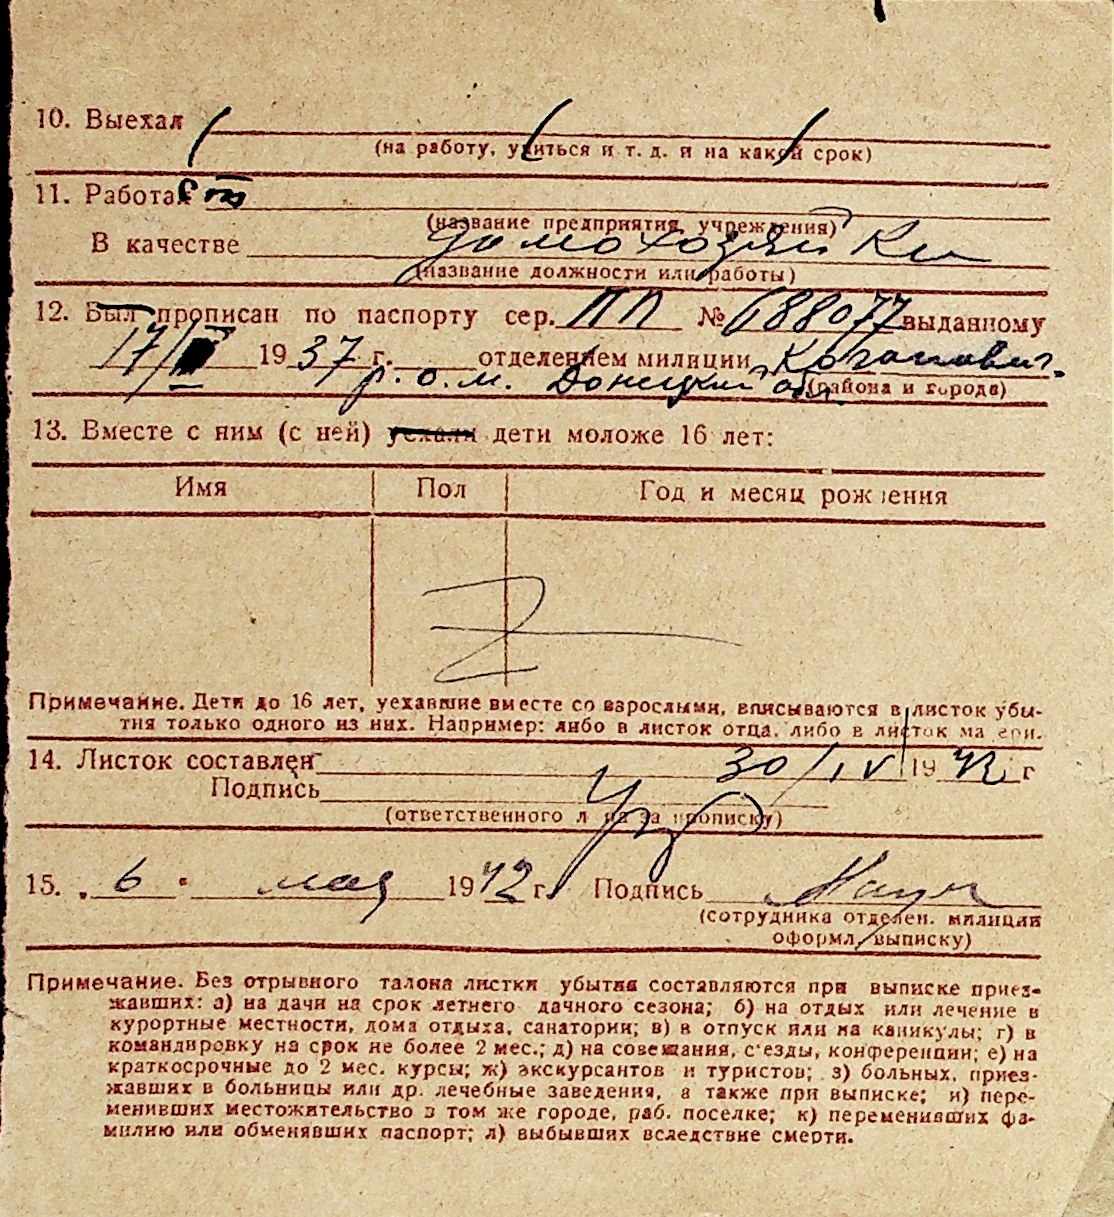 10. Выехал
(на работу, учиться и т. д. и на какой срок)
11. Работает
(название предприятия, учреждения)
В качестве домохозяйки
(название должности или работы)
12. Был прописан по паспорту сер. ПП № 688077 выданному
17/ 1937 г. отделением милиции Коганович.
р.о.м. Донецкий обл. (района и города)
13. Вместе с ним (с ней) уехали дети моложе 16 лет:
Имя Пол Год и месяц рождения
Z
Примечание. Дети до 16 лет, уехавшие вместе со взрослыми, вписываются в листок убы-
тия только одного из них. Например: либо в листок отца, либо в листок матери.
14. Листок составлен 30/IV 1942 г
Подпись
(ответственного лица за прописку)
15. „6" мая 1942 г. Подпись
(сотрудника отделен. милиции
оформл. выписку)
Примечание. Без отрывного талона листки убытия составляются при выписке приез-
жавших: а) на дачи на срок летнего дачного сезона; б) на отдых или лечение в
курортные местности, дома отдыха, санатории; в) в отпуск или на каникулы; г) в
командировку на срок не более 2 мес.; д) на совещания, съезды, конференции; е) на
краткосрочные до 2 мес. курсы; ж) экскурсантов и туристов; з) больных, приез-
жавших в больницы или др. лечебные заведения, а также при выписке; и) пере-
менивших местожительство в том же городе, раб. поселке; к) переменивших фа-
милию или обменявших паспорт; л) выбывших вследствие смерти.